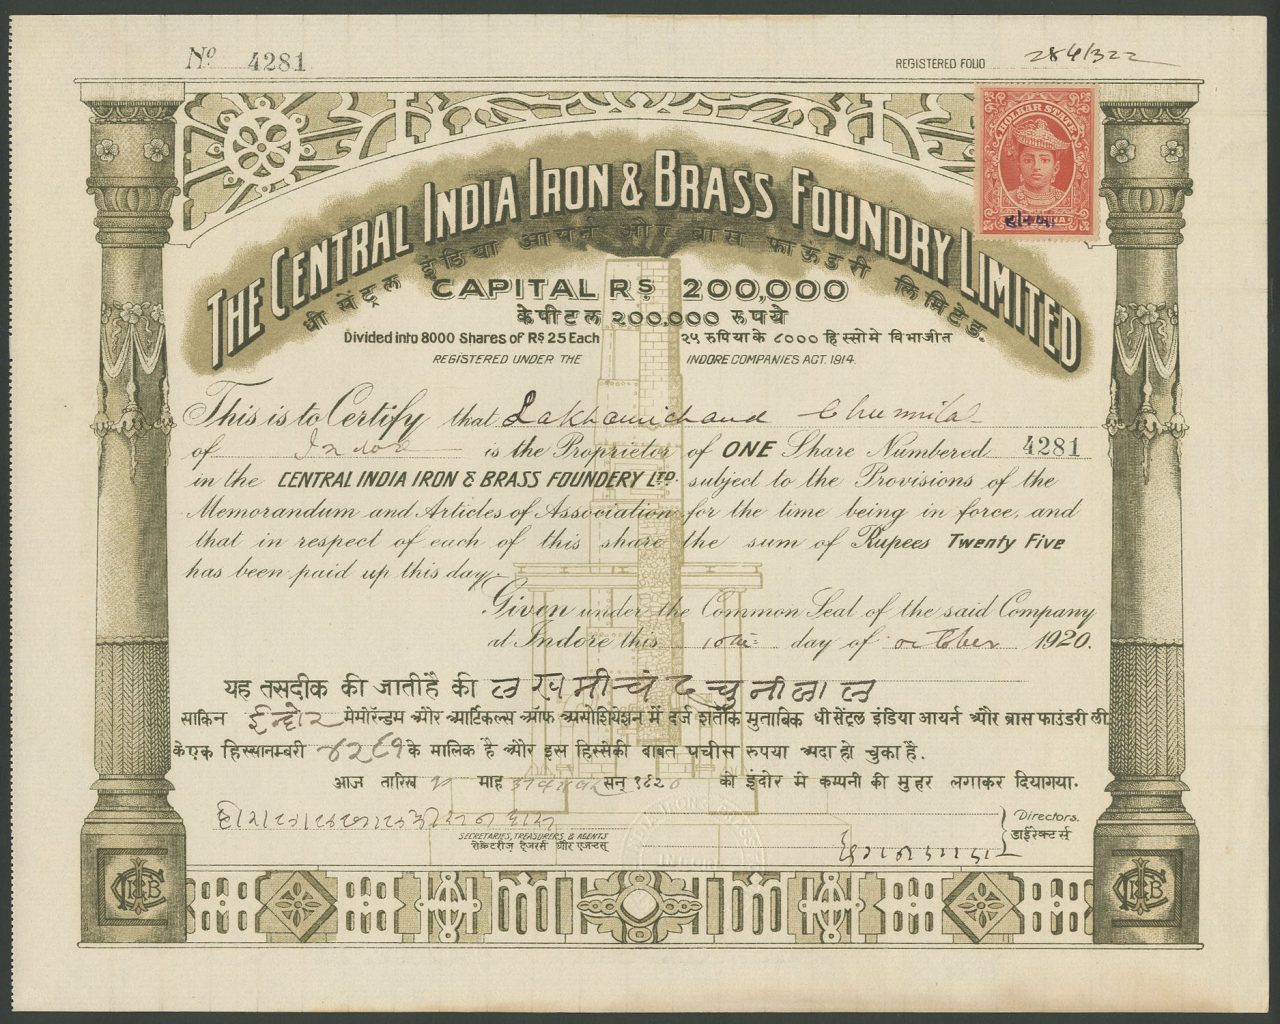 No 4281
REGISTERED FOLIO 284/322
HOLKAR STATE
THE CENTRAL INDIA IRON & BRASS FOUNDRY LIMITED
धी सेंट्रल इंडिया आयर्न और ब्रास फाऊंडरी लिमिटेड.
CAPITAL RS 200,000
केपीटल २००,००० रुपये
Divided into 8000 Shares of RS 25 Each २५ रुपिया के ८००० हिस्सोमे विभाजीत
REGISTERED UNDER THE INDORE COMPANIES ACT. 1914.
This is to Certify that Lakhamichand Chunnilal
of Indore is the Proprietor of ONE Share Numbered 4281
in the CENTRAL INDIA IRON & BRASS FOUNDERY LTD. subject to the Provisions of the
Memorandum and Articles of Association for the time being in force, and
that in respect of each of this share the sum of Rupees TWENTY FIVE
has been paid up this day.
Given under the Common Seal of the said Company
at Indore this 10th day of October 1920.
यह तसदीक की जातीहै की लखमीचंद चुनीलाल
साकिन इन्दोर मेमोरॅन्डम और आर्टिकल्स ऑफ असोशियेशन में दर्ज शर्तोके मुताबिक धी सेंट्रल इंडिया आयर्न और ब्रास फाउंडरी ली.
के एक हिस्सा नम्बरी ४२८१ के मालिक है और इस हिस्सेकी बाबत पचीस रुपया अदा हो चुका है.
आज तारिख माह सन् १९२० को इंदोर मे कम्पनी की मुहर लगाकर दियागया.
SECRETARIES, TREASURERS, & AGENTS
सेक्रेटरीज़ ट्रेजरर्स और एजन्टस्
Directors.
डाईरेक्टर्स